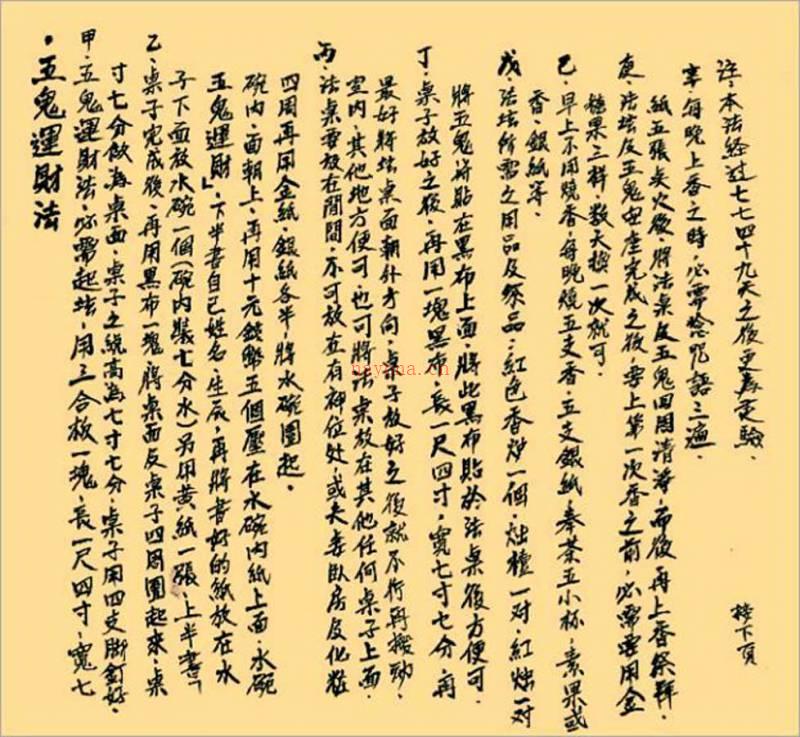 ・五鬼運財法
甲・五鬼運財法・必需起坛・用三合板一塊・長一尺四寸・寬七
寸七分做為桌面・桌子之統高為七寸七分・桌子用四支脚釘好・
乙・桌子完成後・再用黑布一塊將桌面及桌子四周圍起來・桌
子下面放水碗一個(碗内裝七分水)另用黄紙一張・上半書「
五鬼運財」・下半書自己姓名・生辰・再將書好的紙放在水
碗内・面朝上・再用十元錢幣五個壓在水碗内紙上面・水碗
四周再用金紙・銀紙各半・將水碗圍起・
丙・法桌要放在閒間・不可放在有神位处或夫妻臥房及化粧
室内・其他地方便可・也可將法桌放在其他任何桌子上面・
最好將坛桌面朝外方向・桌子放好之後就不行再搬動・
丁・桌子放好之後・再用一塊黑布・長一尺四寸・寬七寸七分・再
將五鬼符貼在黑布上面・將此黑布貼於法桌後方便可・
戊・法坛所需之用品及祭品・紅色香炉一個・烛檯一对・紅烛一对
香・銀紙等・
己・早上不用燒香・每晚燒五支香・五支銀紙・奉茶五小杯・素果或
糖果三样・数天換一次就可・
庚・法坛及五鬼安座完成之後・要上第一次香之前・必需要用金
紙五張点火後・將法桌及五鬼四周清淨・而後再上香祭拜・
辛・每晚上香之時・必需唸咒語三遍・
注・本法経过七七四十九天之後更為灵驗・
接下頁
nayona.cn